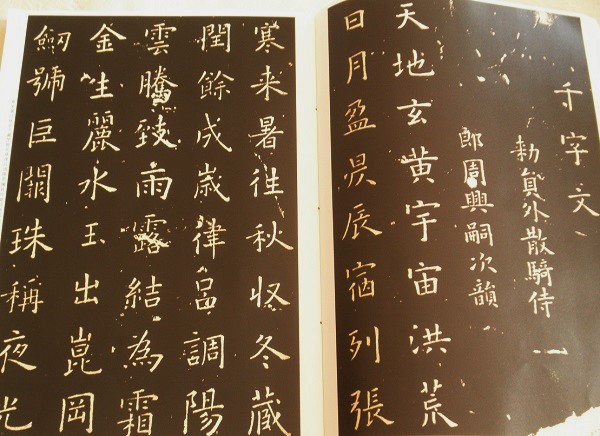 千字文
勅員外散騎侍
郎周興嗣次韻
天地玄黄宇宙洪荒
日月盈昃辰宿列張
寒来暑往秋收冬蔵
閏餘成歳律吕調陽
雲騰致雨露結為霜
金生麗水玉出崑岡
劒號巨闕珠稱夜光